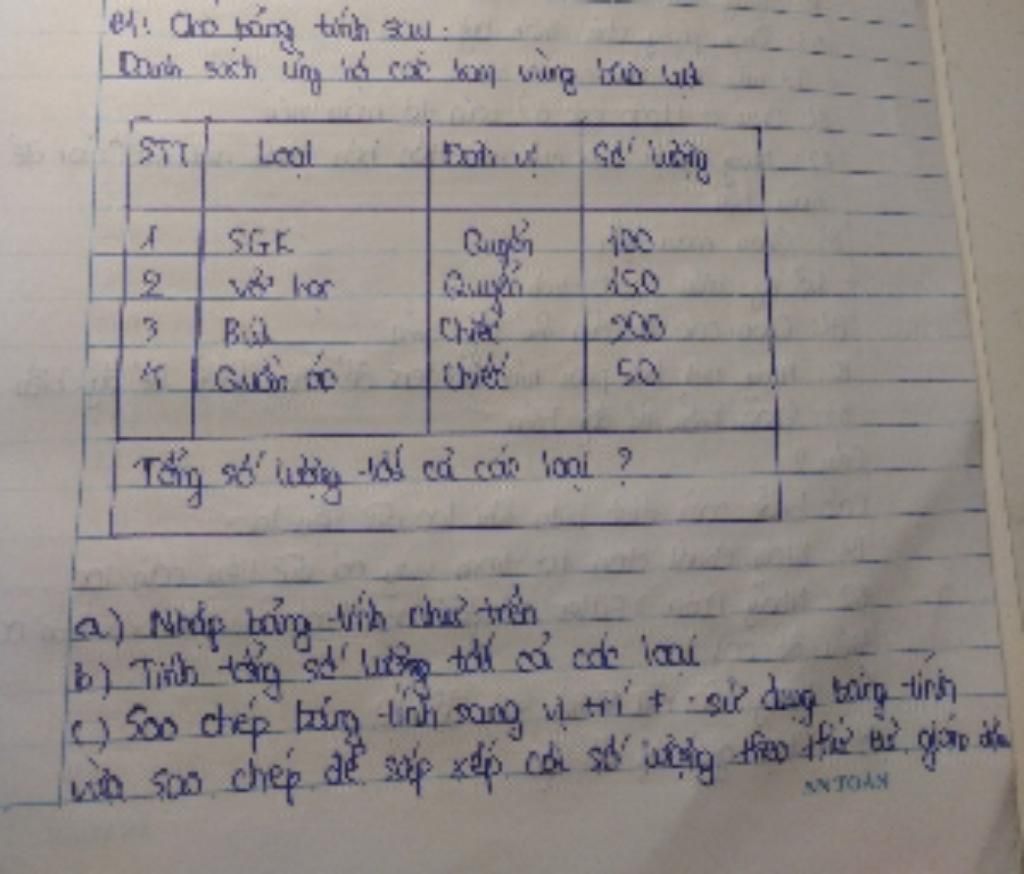 Cho bảng tính sau:
Danh sách ủng hộ các bạn vùng bão lụt
STT Loại Đơn vị Số lượng
1 SGK Quyển 100
2 vở học Quyển 150
3 Bút Chiếc 200
4 Quần áo Chiếc 50
Tổng số lượng tất cả các loại ?
a) Nhập bảng tính như trên
b) Tính tổng số lượng tất cả các loại
c) Sao chép bảng tính sang vị trí sử dụng bảng tính
vừa sao chép để sắp xếp cột số lượng theo thứ tự giảm dần
AN TOÀN